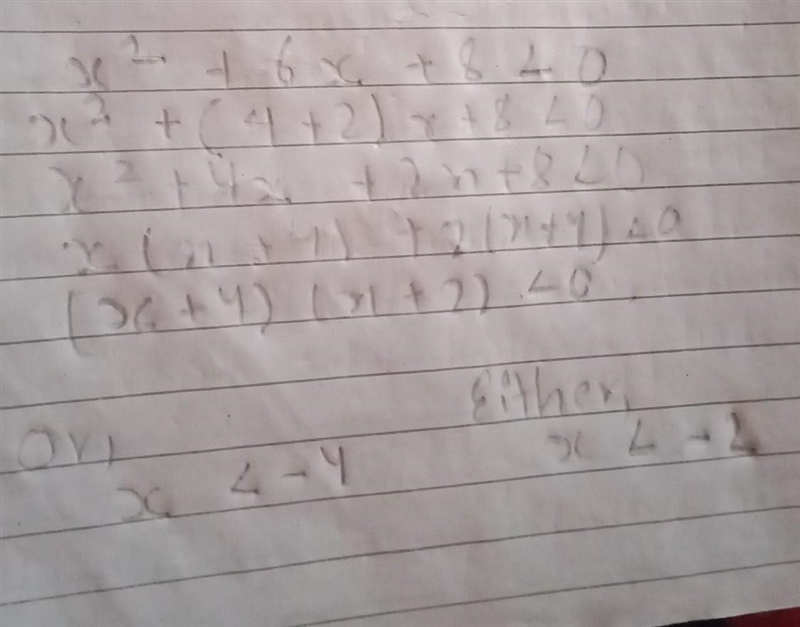 x² + 6x + 8 < 0
x² + (4+2)x + 8 < 0
x² + 4x + 2x + 8 < 0
x(x + 4) + 2(x+4) < 0
(x + 4) (x + 2) < 0
Either,
x < -2
Or,
x < -4